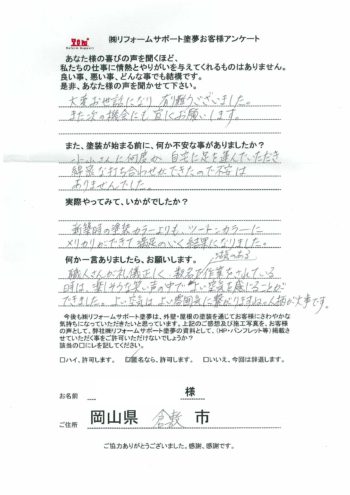 ㈱リフォームサポート塗夢お客様アンケート
あなた様の喜びの声を聞くほど、
私たちの仕事に情熱とやりがいを与えてくれるものはありません。
良い事、悪い事、どんな事でも結構です。
是非、あなた様の声を聞かせて下さい。
大変お世話になり有難うございました。
また次の機会にも宜しくお願いします。
また、塗装が始まる前に、何か不安な事がありましたか？
小山さんに何度か自宅に足を運んでいただき
綿密な打ち合わせができたので不安は
ありませんでした。
実際やってみて、いかがでしたか？
新築時の塗装カラーよりも、ツートンカラーに
メリハリができて満足のいく結果になりました。
何か一言ありましたら、お願いします。
職人さんが礼儀正しく 数名で作業をされている
時は、楽しそうな笑い声の中で 活気のある よい空気を感じることが
できました。よい空気は よい雰囲気に繋がりますね。人柄が大事です。
今後も㈱リフォームサポート塗夢は、外壁・屋根の塗装を通じてお客様にさわやかな
気持ちになっていただきたいと思っています。上記のご感想及び施工写真を、お客様
の声として、弊社㈱リフォームサポート塗夢の資料として、（HP・パンフレット等）掲載さ
せていただく事をご許可いただけないでしょうか？
該当の□にレを記してください。
□ハイ、許可します。 ☑匿名なら、許可します。 □いいえ、今回は辞退します。
お名前 様
ご住所 岡山県 倉敷 市
ご協力ありがとうございました。感謝、感謝です。